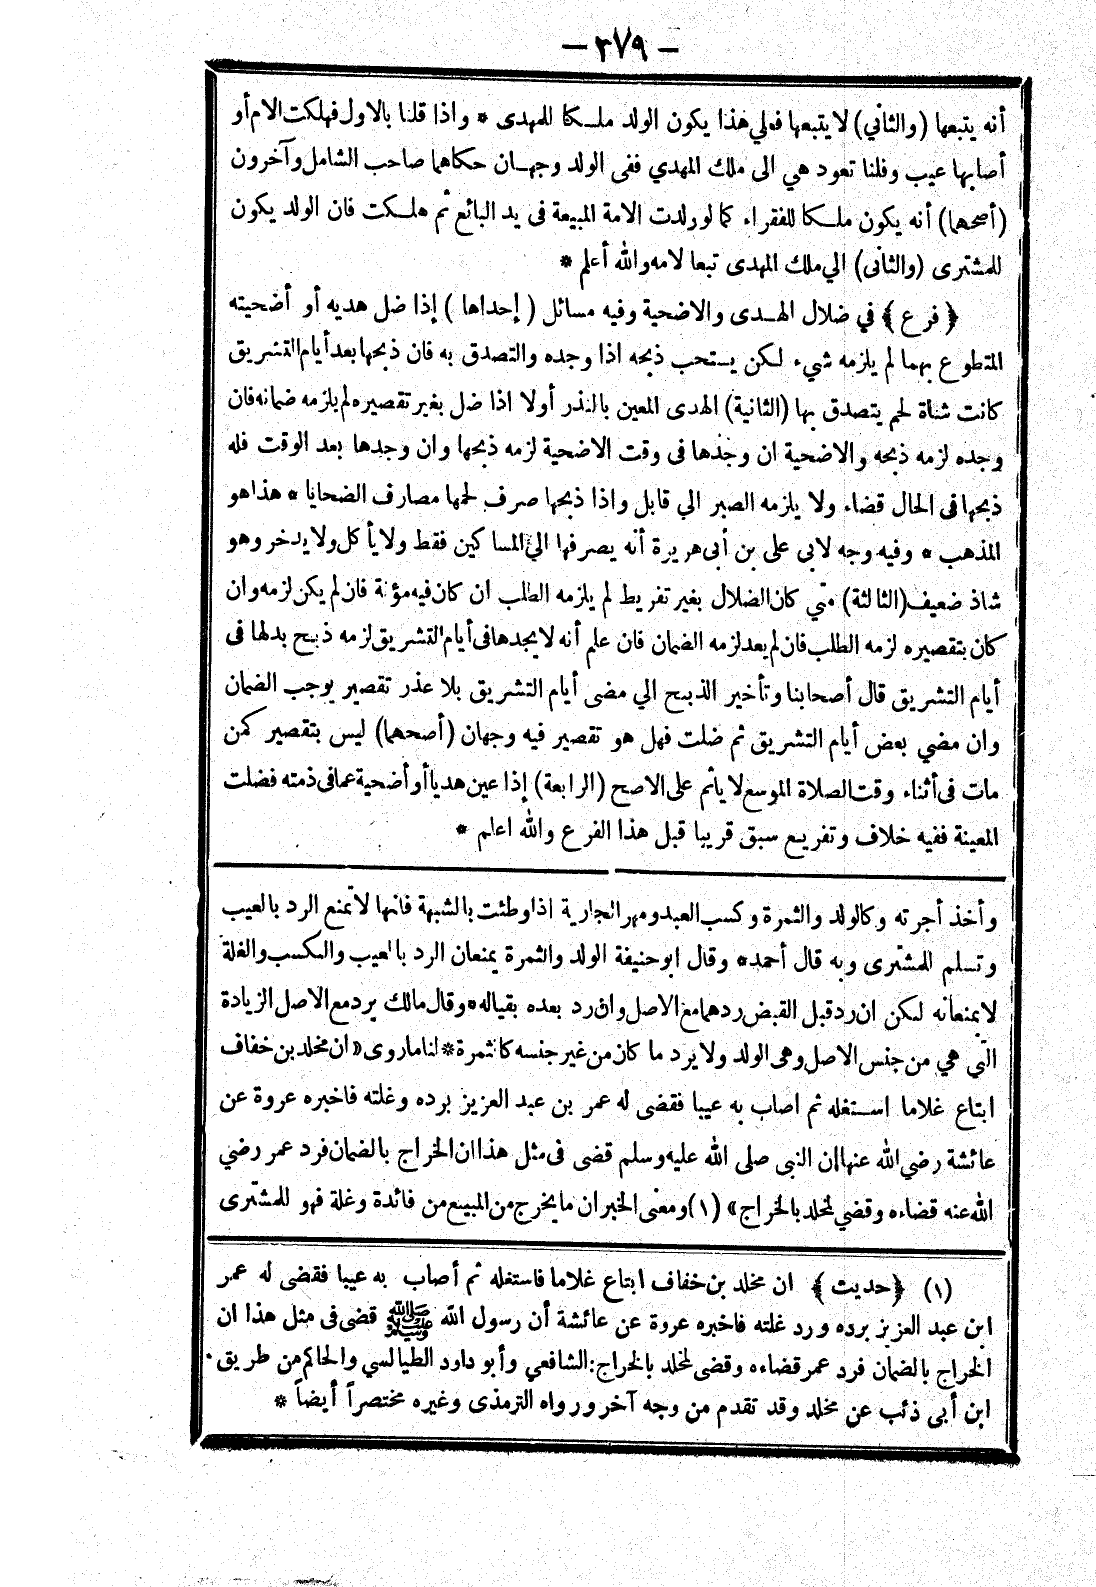 — ٣٧٩ —
أنه يتبعها (والثاني) لا يتبعها فعلي هذا يكون الولد ملكا للمهدى * واذا قلنا بالاول فهلكت الام أو
أصابها عيب وقلنا تعود هي الى ملك المهدي ففى الولد وجهان حكاهما صاحب الشامل وآخرون
(أصحها) أنه يكون ملكا للفقراء كما لو ولدت الامة المبيعة فى يد البائع ثم هلكت فان الولد يكون
للمشترى (والثانى) الي ملك المهدى تبعا لامه والله أعلم *
﴿فرع﴾ في ضلال الهدى والاضحية وفيه مسائل (إحداها) إذا ضل هديه أو أضحيته
المتطوع بهما لم يلزمه شيء لكن يستحب ذبحه اذا وجده والتصدق به فان ذبحها بعد أيام التشريق
كانت شاة لحم يتصدق بها (الثانية) الهدى المعين بالنذر أولا اذا ضل بغير تقصيره لم يلزمه ضمانه فان
وجده لزمه ذبحه والاضحية ان وجدها فى وقت الاضحية لزمه ذبحها وان وجدها بعد الوقت فله
ذبحها فى الحال قضاء ولا يلزمه الصبر الي قابل واذا ذبحها صرف لحمها مصارف الضحايا * هذا هو
المذهب * وفيه وجه لابى على بن أبى هريرة أنه يصرفها الي المساكين فقط ولا يأكل ولا يدخر وهو
شاذ ضعيف (الثالثة) متي كان الضلال بغير تفريط لم يلزمه الطلب ان كان فيه مؤنة فان لم يكن لزمه وان
كان بتقصيره لزمه الطلب فان لم يعد لزمه الضمان فان علم أنه لا يجدها فى أيام التشريق لزمه ذبح بدلها فى
أيام التشريق قال أصحابنا وتأخير الذبح الي مضى أيام التشريق بلا عذر تقصير يوجب الضمان
وان مضي بعض أيام التشريق ثم ضلت فهل هو تقصير فيه وجهان (أصحهما) ليس بتقصير كمن
مات فى أثناء وقت الصلاة الموسع لا يأثم على الاصح (الرابعة) إذا عين هديا أو أضحية عما فى ذمته فضلت
المعينة ففيه خلاف وتفريع سبق قريبا قبل هذا الفرع والله اعلم *
وأخذ أجرته وكالولد والثمرة وكسب العبد ومهر الجارية اذا وطئت بالشبهة فانها لا تمنع الرد بالعيب
وتسلم للمشترى وبه قال أحمد * وقال ابو حنيفة الولد والثمرة يمنعان الرد بالعيب والكسب والغلة
لا يمنعانه لكن ان رد قبل القبض ردهما مع الاصل وان رد بعده بقياله * وقال مالك يرد مع الاصل الزيادة
التي هي من جنس الاصل وهى الولد ولا يرد ما كان من غير جنسه كالثمرة * لنا ما روى «ان مخلد بن خفاف
ابتاع غلاما استغله ثم اصاب به عيبا فقضى له عمر بن عبد العزيز برده وغلته فاخبره عروة عن
عائشة رضي الله عنها إن النبى صلى الله عليه وسلم قضى فى مثل هذا ان الخراج بالضمان فرد عمر رضي
الله عنه قضاءه وقضي لمخلد بالخراج» (١) ومعنى الخبر ان ما يخرج من المبيع من فائدة وغلة فهو للمشترى
(١) ﴿حديث﴾ ان مخلد بن خفاف ابتاع غلاما فاستغله ثم أصاب به عيبا فقضى له عمر
ابن عبد العزيز برده ورد غلته فاخبره عروة عن عائشة أن رسول الله ﷺ قضى فى مثل هذا ان
الخراج بالضمان فرد عمر قضاءه وقضى لمخلد بالخراج: الشافعي وأبو داود الطيالسي والحاكم من طريق
ابن أبى ذئب عن مخلد وقد تقدم من وجه آخر ورواه الترمذى وغيره مختصراً أيضاً *